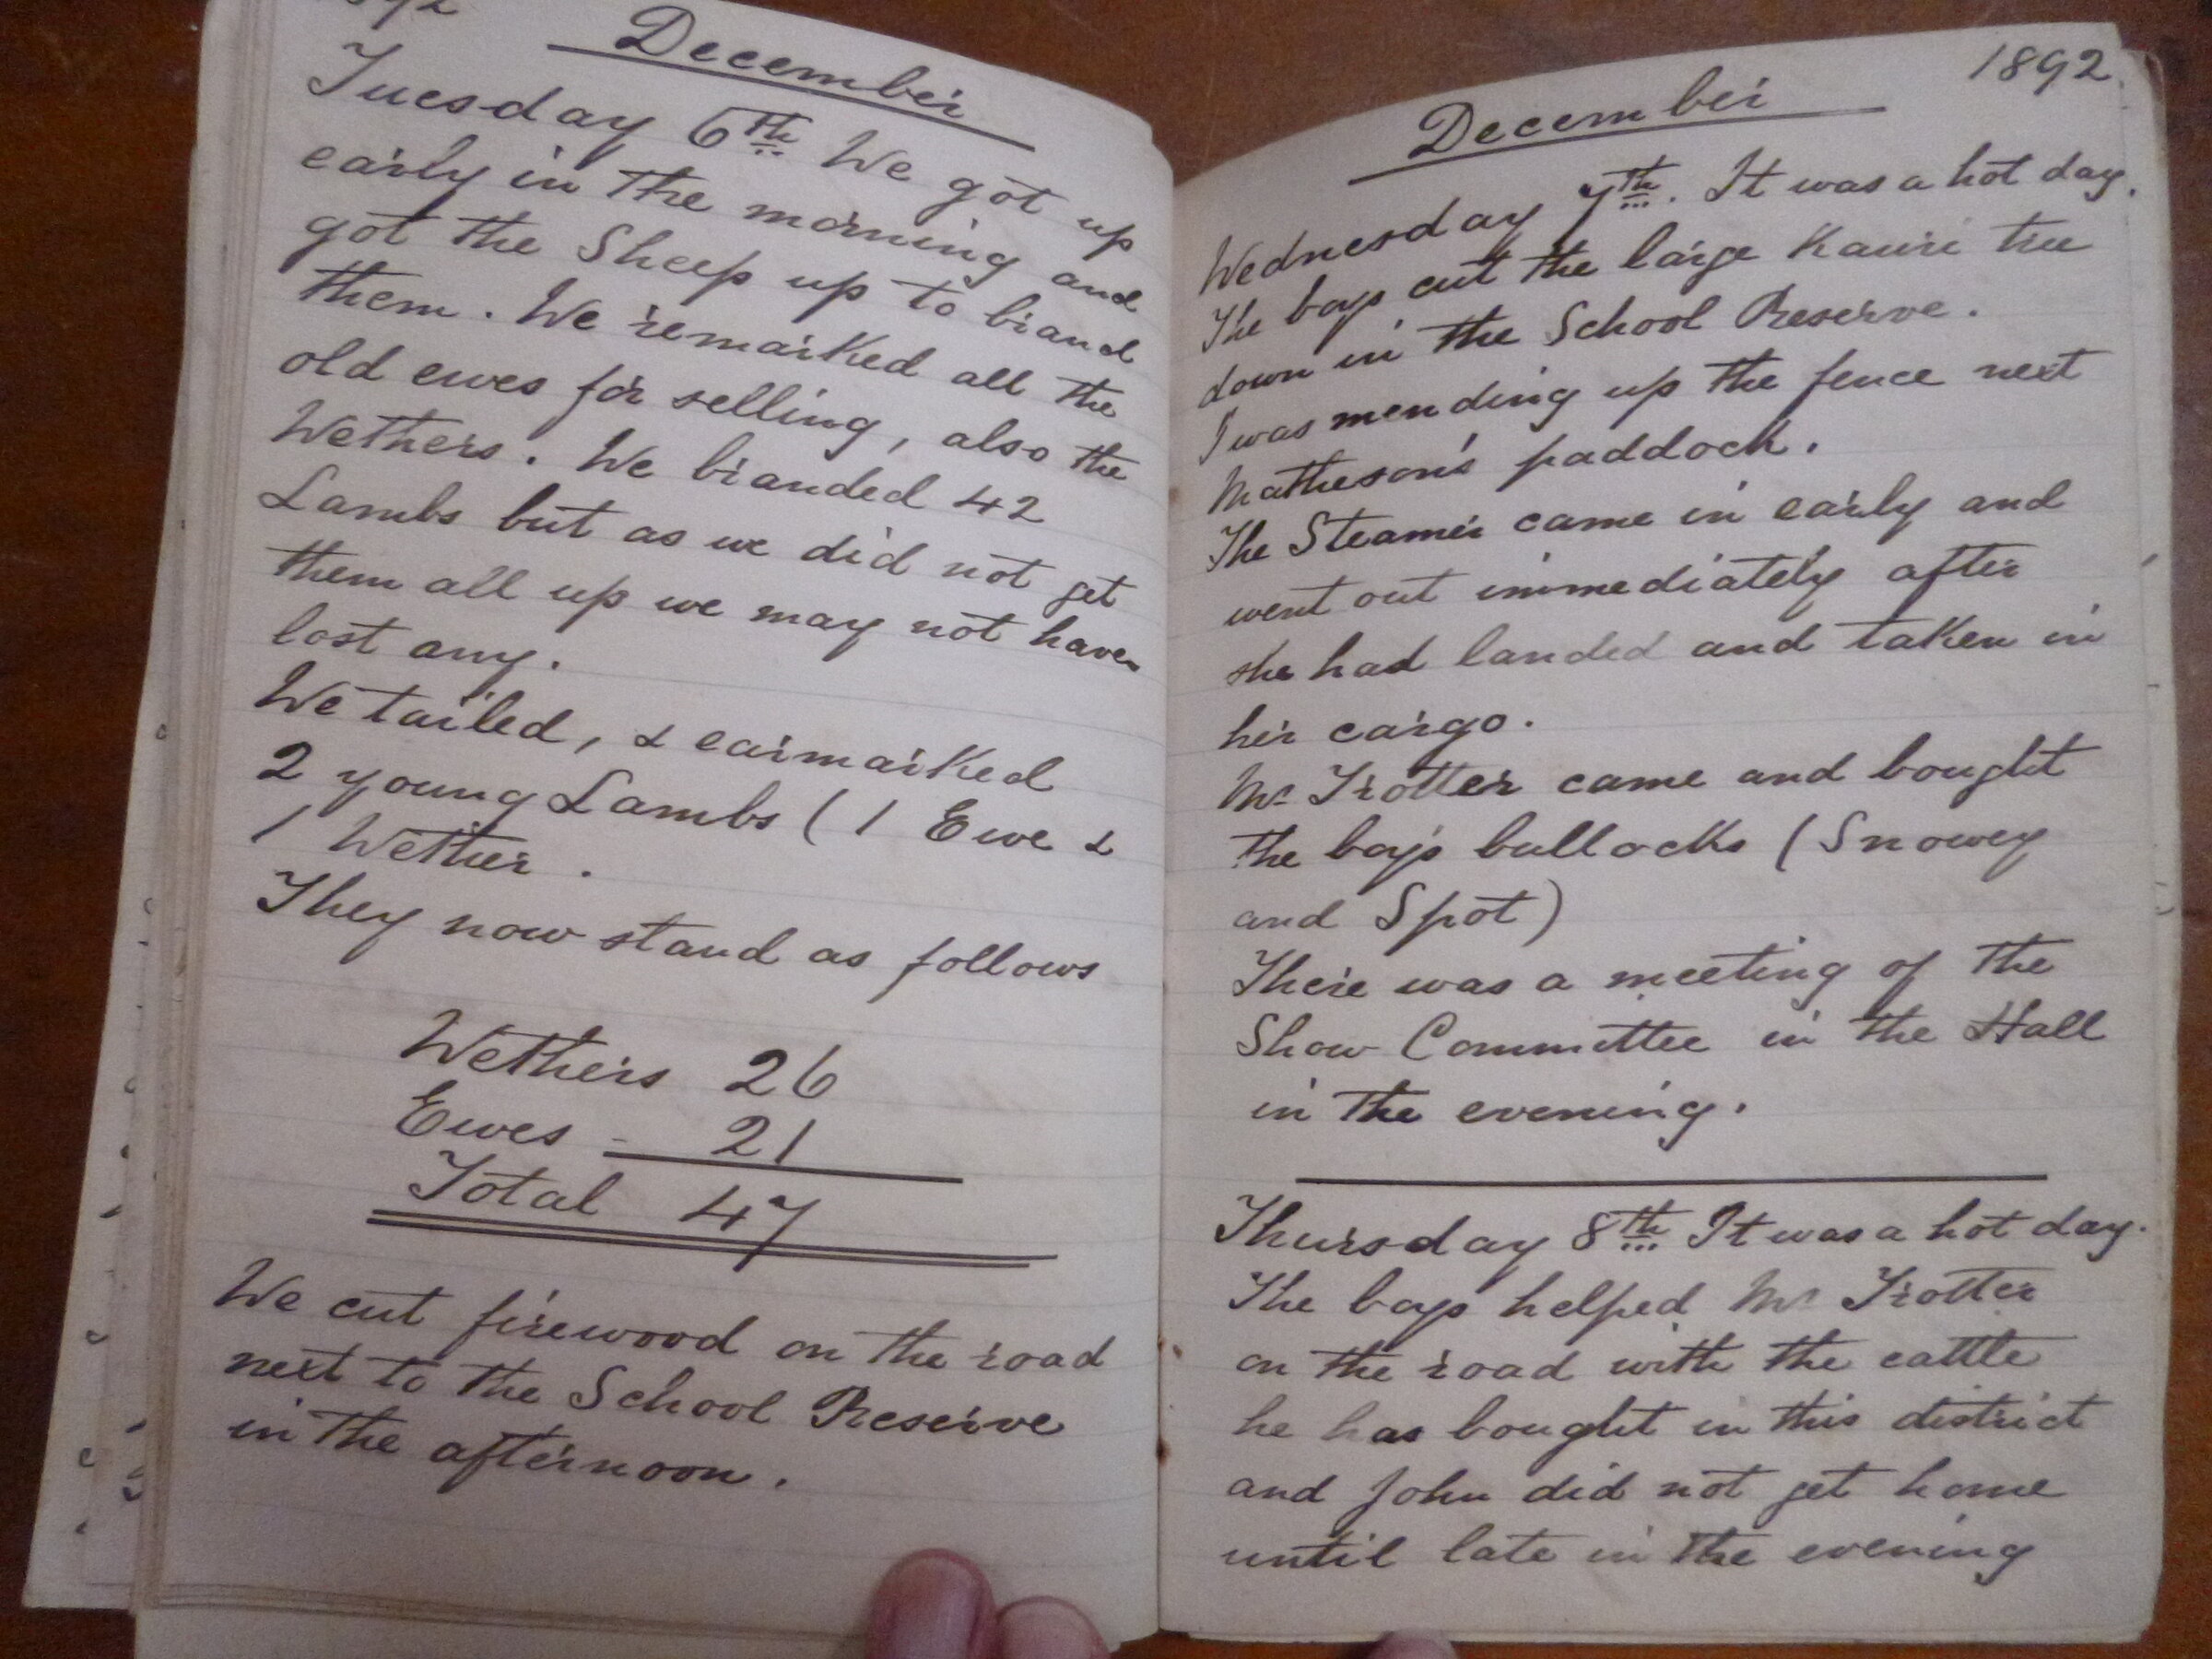 December
Tuesday 6th We got up
early in the morning and
got the Sheep up to brand
them. We remarked all the
old ewes for selling, also the
Wethers. We branded 42
Lambs but as we did not get
them all up we may not have
lost any.
We tailed, & earmarked
2 young Lambs (1 Ewe &
1 Wether.
They now stand as follows
Wethers 26
Ewes - 21
Total 47
We cut firewood on the road
next to the School Reserve
in the afternoon.
1892
December
Wednesday 7th. It was a hot day.
The boys cut the large Kauri tree
down in the School Reserve.
I was mending up the fence next
Matheson's paddock.
The Steamer came in early and
went out immediately after
she had landed and taken in
her cargo.
Mr Trotter came and bought
the boys bullocks (Snowey
and Spot)
There was a meeting of the
Show Committee in the Hall
in the evening.
Thursday 8th It was a hot day.
The boys helped Mr Trotter
on the road with the cattle
he has bought in this district
and John did not get home
until late in the evening